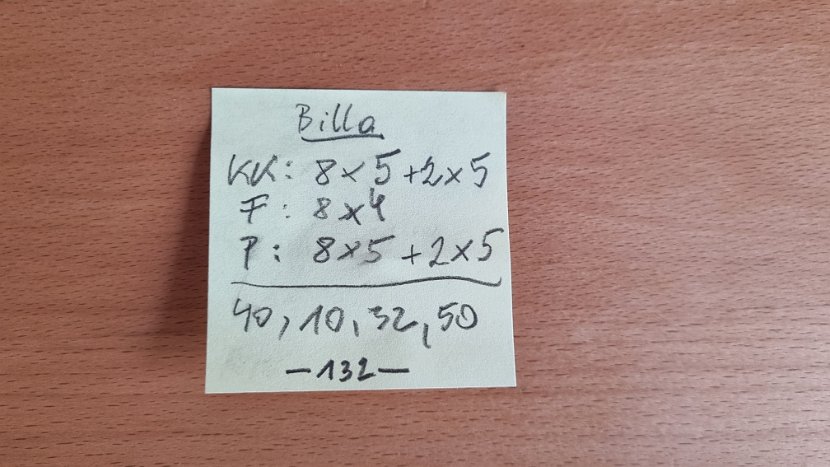 Billa
KK: 8×5+2×5
F: 8×4
P: 8×5+2×5
40, 10, 32, 50
—132—